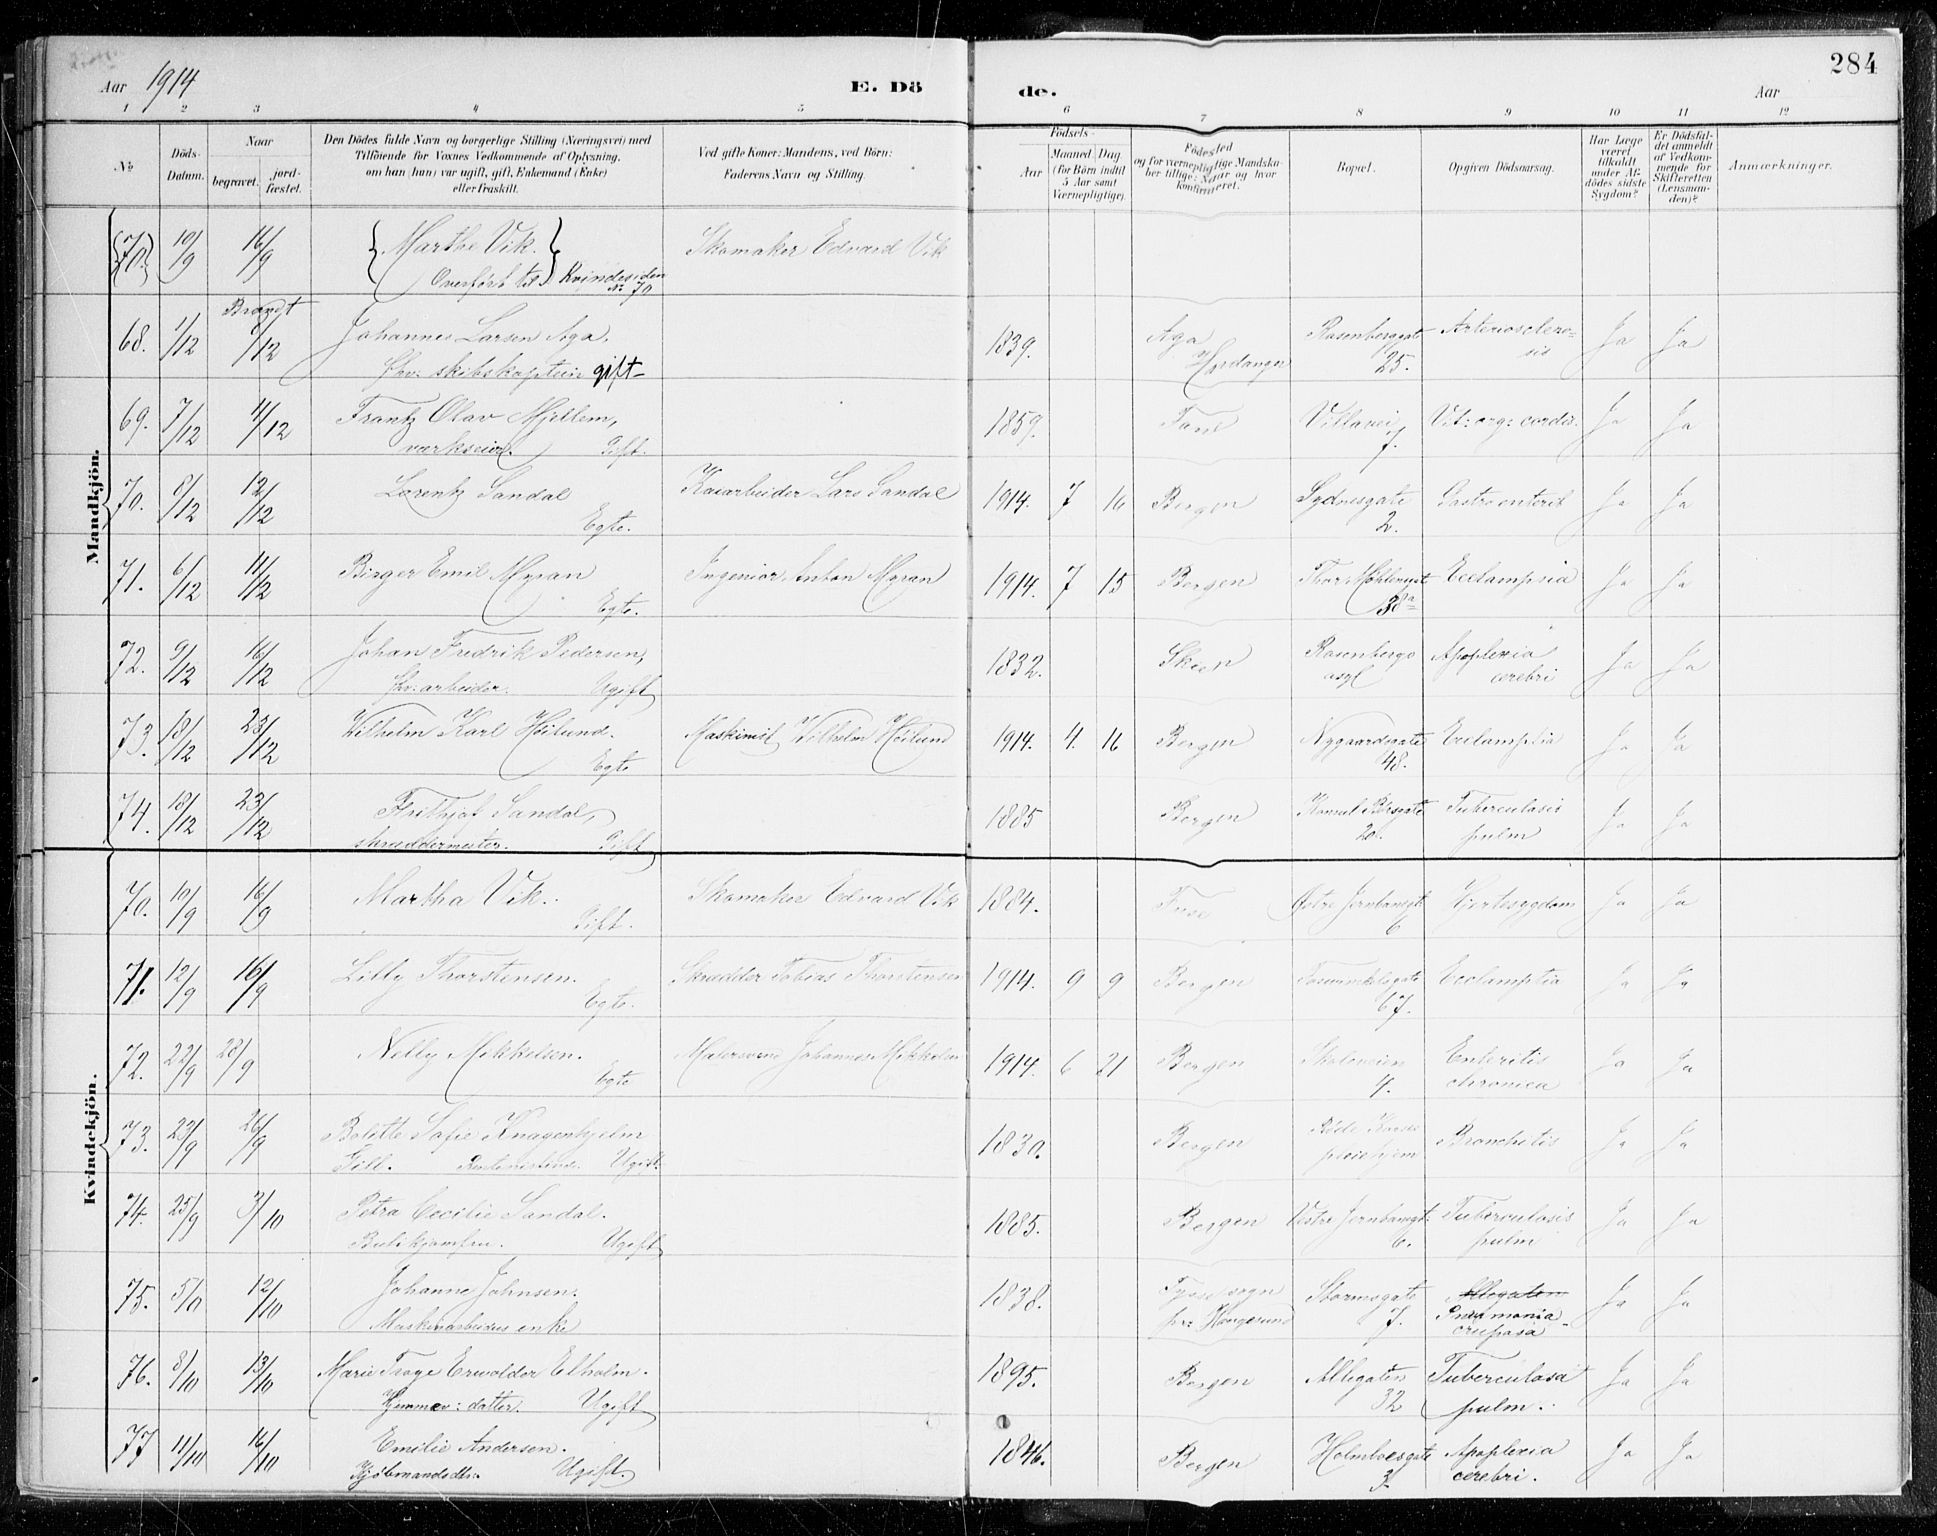 Aar 1914 E. Dö de. Aar 284
1 2 3 4 5 6 7 8 9 10 11 12
No. Döds-Datum. Naar begravet. jordfæstet. Den Dödes fulde Navn og borgerlige Stilling (Næringsvei) med Tilföiende for Voxnes Vedkommende af Oplysning, om han (hun) var ugift, gift, Enkemand (Enke) eller fraskilt. Ved gifte Koner: Mandens, ved Börn: Faderens Navn og Stilling. Födsels- Aar Maaned. Dag. (for Börn indtil 5 Aar samt Værnepligtige) Födested og for værnepligtige Mandskaber tillige: Naar og hvor konfirmeret. Bopæl. Opgiven Dödsaarsag. Har Læge været tilkaldt under Afdödes sidste Sygdom? Er Dödsfaldet anmeldt af Vedkommende for Skifteretten (Lensmanden)? Anmærkninger.
Mandkjön.
(70.) 10/9 16/9 {Marthe Vik.} Skomaker Edvard Vik
Overført til Kvindesiden No 70
Brændt
68. 1/12 8/12 Johannes Larsen Aga, 1839. Aga Rosenberggate Arteriosclero- Ja Ja
fhv. skibskaptein gift Hardanger 25. sis
69. 7/12 4/12 Frantz Olav Mjellem, 1859. Fane Villavei Vit: org: cordis. Ja Ja
værkseier. Gift. 7.
70. 8/12 12/12 Lorentz Sandal Kaiarbeider Lars Sandal 1914. 7 16 Bergen Sydnesgate Gastroenterit Ja Ja
Egte. 2.
71. 6/12 11/12 Birger Emil Myran Ingeniør Anton Myran 1914. 7 15 Bergen Thor Møhlensgt Ecclampsia Ja Ja
Egte. 38a
72. 9/12 16/12 Johan Fredrik Pedersen, 1832. Skien Rosenbergs Apoplexia Ja Ja
fhv: arbeider. Ugift asyl cerebri
73. 18/12 23/12 Wilhelm Karl Høilund. Maskinist Wilhelm Høilund 1914. 4. 16 Bergen Nygaardsgate Ecclamptia Ja Ja
Egte 48.
74. 18/12 23/12 Frithjof Sandal, 1885 Bergen Konsul Børsgate Tuberculosis Ja Ja
skræddermester. Gift 20. pulm
Kvindekjön.
70. 10/9 16/9 Martha Vik. Skomaker Edvard Vik 1884. Fuse Østre Jernbanegt. Hjertesygdom Ja Ja
Gift. 6
71. 12/9 16/9 Lilly Thorstensen. Skrædder Tobias Thorstensen 1914. 9 9 Bergen Ecclamptia Ja Ja
Egte. 67.
72. 22/9 28/9 Nelly Mikkelsen. Malersvend Johannes Mikkelsen 1914. 6 21 Bergen Skoleveien Enteritis Ja Ja
Egte 4. chronica
73. 23/9 26/9 Bolette Sofie Knagenhjelm 1830. Bergen Røde Korses Bronchitis Ja Ja
Gill. Rentenistinde. Ugift pleiehjem
74. 25/9 3/10 Petra Cecilie Sandal. 1885. Bergen Vestre Jernbanegt. Tuberculosis Ja Ja
Butikjomfru. Ugift 6. pulm
75. 5/10 12/10 Johanne Johnsen. 1838. sogn Stormsgate Allegaten Ja Ja
Maskinarbeiders enke pr: Haugesund 7. Pneumonia
cruposa
76. 8/10 13/10 Marie Elholm. 1895. Bergen Allegaten Tuberculosis Ja Ja
datter. Ugift 32 pulm.
77 11/10 16/10 Emilie Andersen. 1846. Bergen Holmboesgate Apoplexia Ja Ja
Kjøbmandsdtr. Ugift. 3. cerebri.